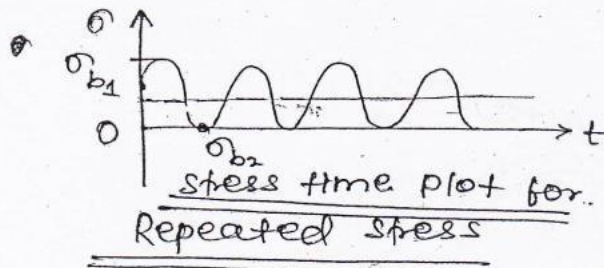 σ
σb1
0
t
σb2
stress time plot for.
Repeated stress